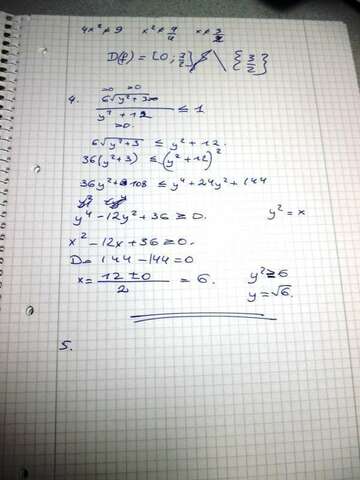 4x² ≠ 9 x² ≠ 9/4 x ≠ 3/2
D(f) = [0, 3/2] \ {3/2}
4. 6√(y²+3) / (y²+12) ≤ 1
≥0 ≥0
>0.
6√(y²+3) ≤ y²+12.
36(y²+3) ≤ (y²+12)²
36y²+108 ≤ y⁴+24y²+144
y⁴-12y²+36 ≥ 0. y² = x
x²-12x+36 ≥ 0.
D = 144-144=0
x = (12±0)/2 = 6. y² ≥ 6
y = √6.
5.